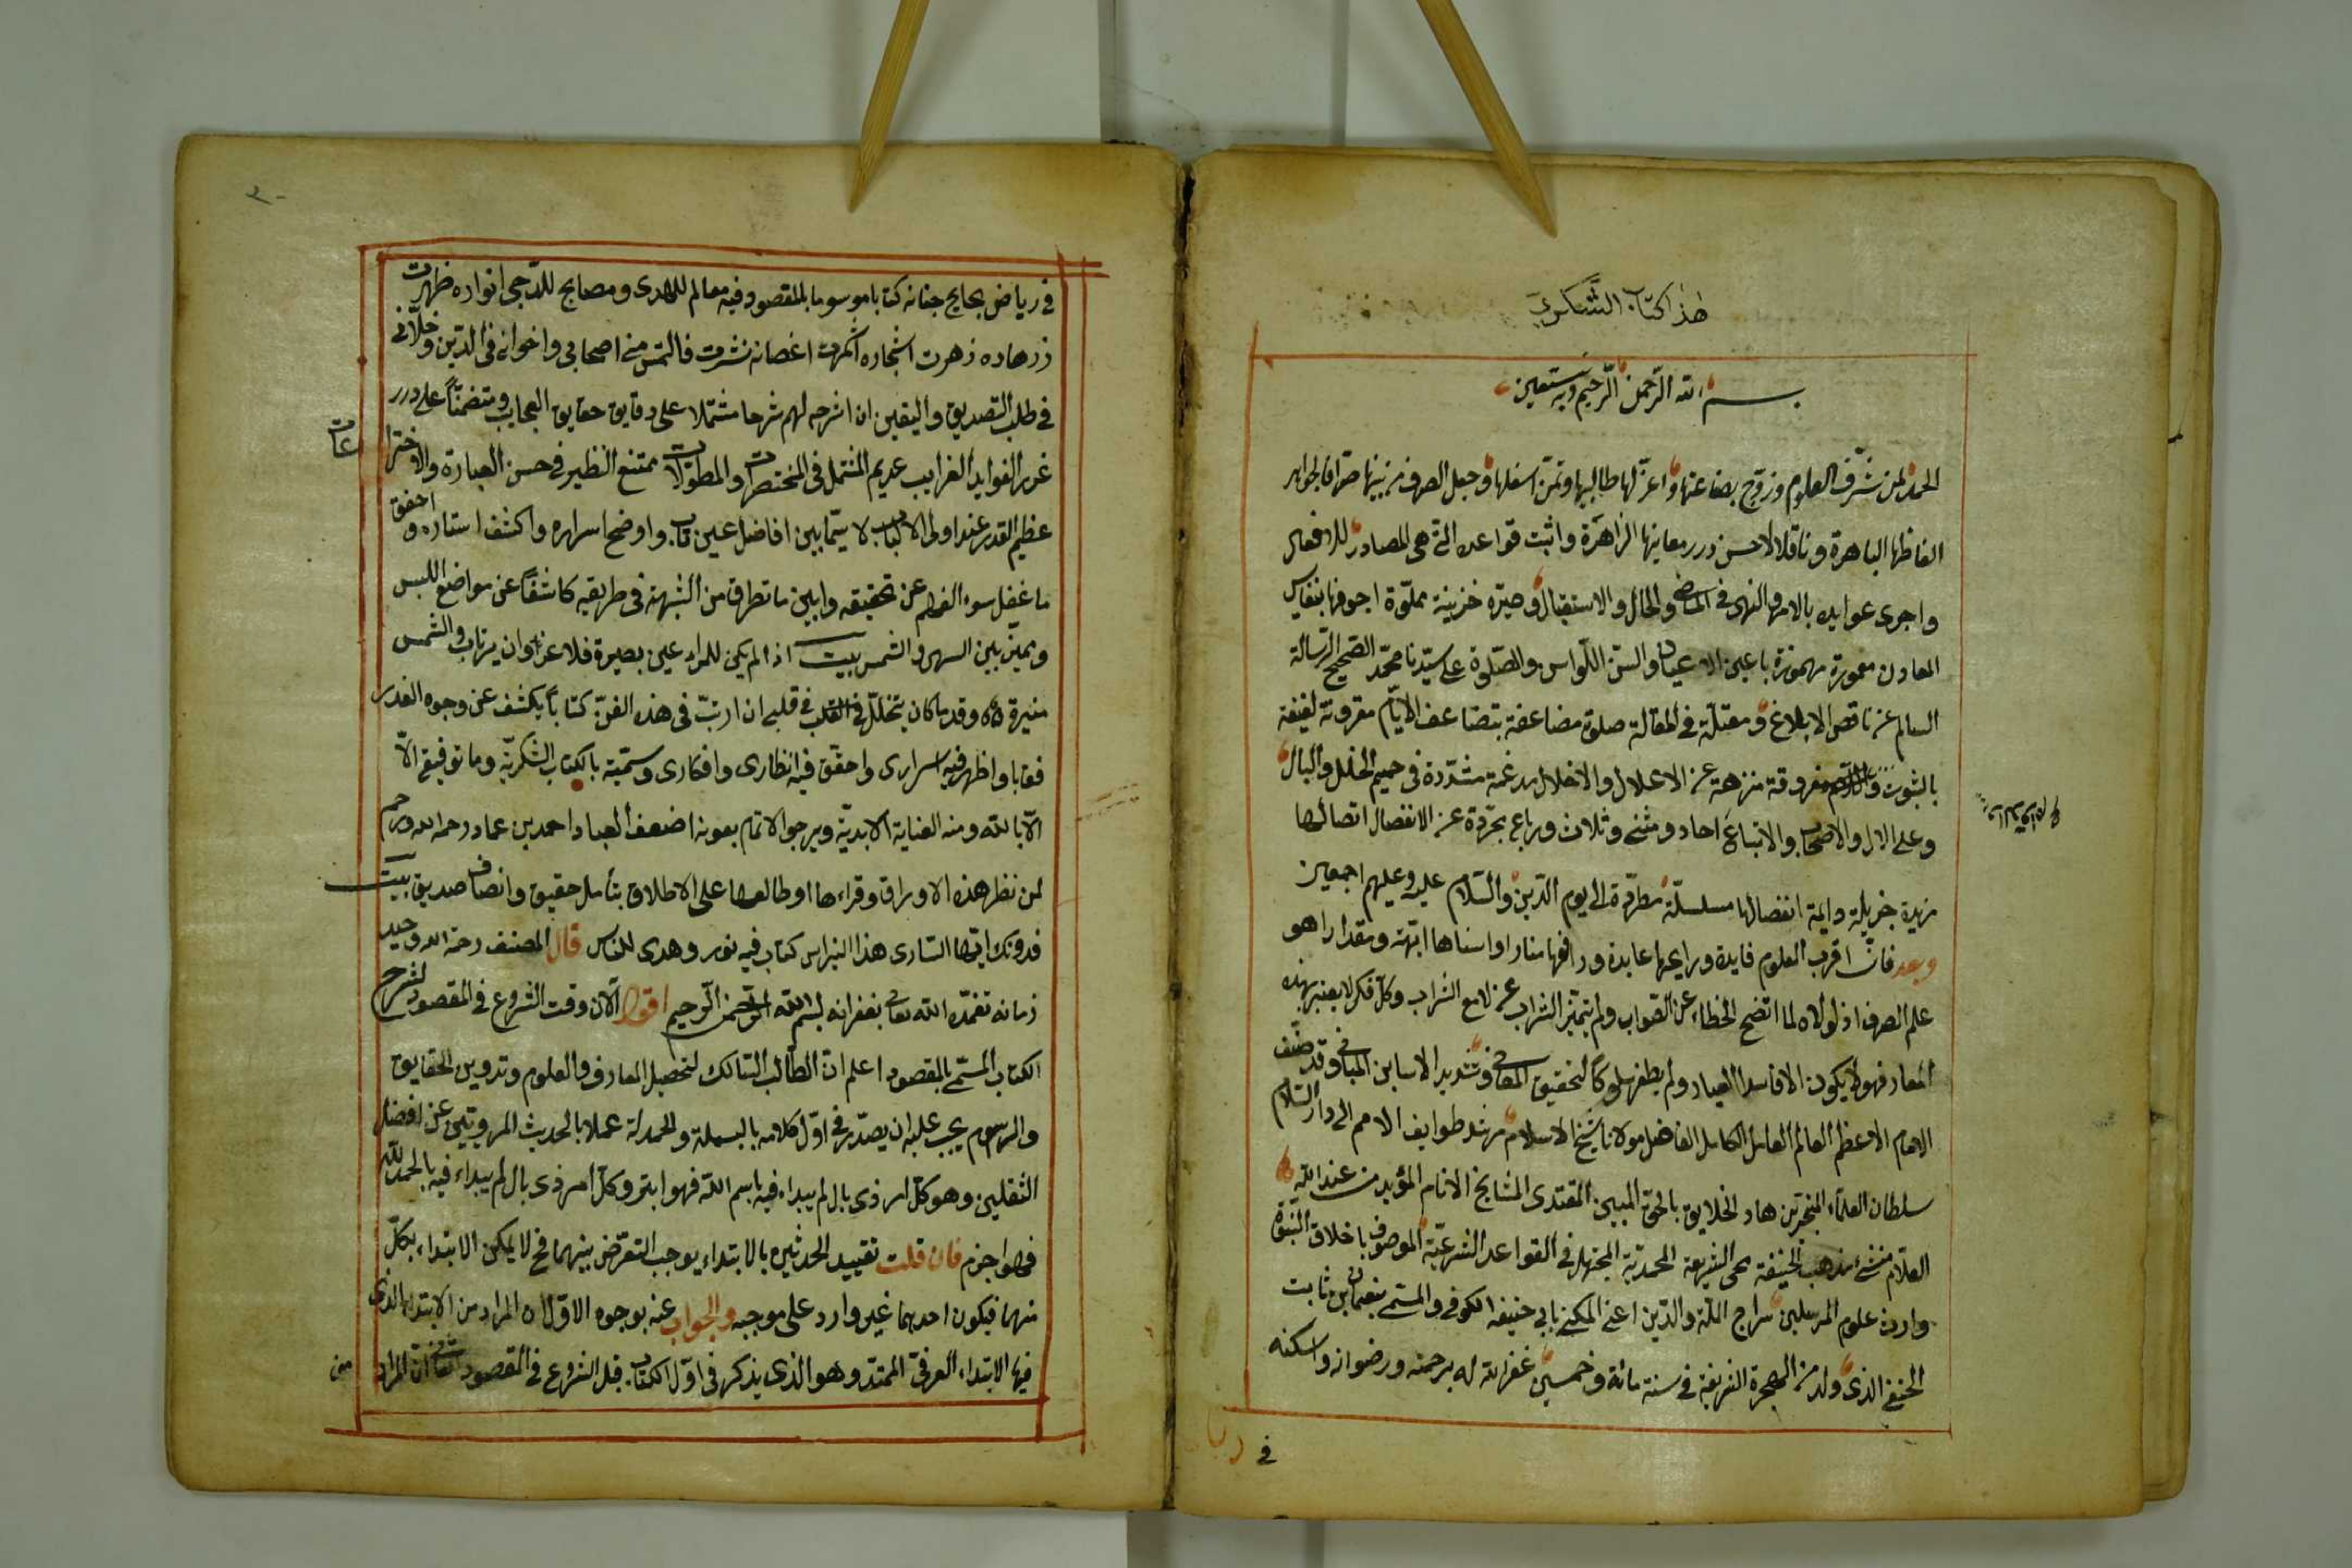 هذا كتاب الشكري
بسم الله الرحمن الرحيم وبه نستعين
الحمد لمن شرف العلوم وزوج بضاعتها واعز لها طالبيها وثمن اسفلها وجعل الصرف من بينها صرافا لجواهر
الفاظها الباهرة وناقلا لاحسن درر معانيها الزاهرة واثبت قواعده التي هي المصادر للافعال
واجرى عوايده بالامر والنهي في الماضي والحال والاستقبال وصيره خزينة مملوة اجوفها بنفايس
المعادن معمورة مهموزة باعين الاعيان والسن اللواس والصلوة على سيدنا محمد الصحيح الرسالة
السالم عن ناقص الابلاغ ومعتلة في المقالة صلوة مضاعفة بتضاعف الايام مقرونة لفيفة
بالثبوت مفروقة منزهة عن الاعلال والاخلال مدغمة مشددة في صميم الخلل والبال
وعلى الال والاصحاب والاتباع احاد ومثنى وثلاث ورباع مجردة عن الانفصال اتصالها
مزيدة جزيلة دايمة انفصالها مسلسلة مطردة الى يوم الدين والسلام عليه وعليهم اجمعين
وبعد فان اقرب العلوم فايدة ورايجها عايدة ورافها منارا واسناها ابهة ومقدارا هو
علم الصرف اذ لولاه لما اتضح الخطاء عن الصواب ولم يتميز الشراب عن لامع السراب وكل فكر لا يعتبر بهذه
المعار فهو لا يكون الا فاسد العيار ولم يظفر سلوكا لتحقيق المعاني وتشديد الاساس المباني وقد صنف
الامام الاعظم العالم العامل الكامل الفاضل مولانا شيخ الاسلام مرشد طوايف الامم الى دار السلام
سلطان العلماء المتبحرين هاد الخلايق بالحق المبين المقتدى المشايخ الانام المؤيد من عند الله
العلام منشئ مذهب الحنيفة محى الشريعة المحمدية المجتهد في القواعد الشرعية الموصوف باخلاق النبوة
وارث علوم المرسلين سراج الملة والدين اعني المكنى بابي حنيفة الكوفي والمسمى بنعمان بن ثابت
الحنفي الذي ولد من الهجرة الشريفة في سنة مائة وخمسين غفر الله له برحمته ورضوانه واسكنه
في
في رياض بحابح جنانه كتابا موسوما بالمقصود فيه معالم للهدى ومصابح للدجى انواره ظهرت
ازهاده زهرت اشجاره اثمرت اغصانه نشرت فالتمس مني اصحابي واخواني في الدين وخلاني
في طلب التصديق واليقين ان اشرحه لهم شرحا مشتملا على دقايق حقايق العجايب ومتضمنا على درر
غرر الفوايد الغرايب عديم المثل في المختصرات والمطولات ممتنع النظير في حسن العبارة والاخترا
عات
عظيم القدر عند اولى الالباب لا سيما بين افاضل عين تاب واوضح اسراره واكشف استاره واحقق
ما غفل سوء الفهم عن تحقيقه وابين ما تطرق من الشبهة في طريقيه كاشفا عن مواضع اللبس
ويميز بين السهى والشمس بيت اذا لم يكن للمراء عين بصيرة فلا غرو ان يرتاب والشمس
منيرة وقد ما كان يتخلل في قلبي ان ارتب في هذه الفن كتابا يكشف عن وجوه الغدر
فقابا واظهر فيه اسراري واحقق فيه انظاري وافكاري وسميته بالكتاب الشكرية وما توفيقي الا
الا بالله ومنه العناية الابدية ويرجو الاتمام بعونه اضعف العباد احمد بن عماد رحمه الله ورحم
لمن نظر هذه الاوراق وقراءها او طالعها على الاطلاق بتأمل حقيق وانصاف صديق بيت
فدونك ايها السارى هذا النبراس كتاب فيه نور وهدى للناس قال المصنف رحمه الله وحيد
زمانه تغمده الله تعالى بغفرانه بسم الله الرحمن الرحيم اقول الان وقت الشروع في المقصود لشرح
الكتاب المسمى بالمقصود اعلم ان الطالب السالك لتحصيل المعارف والعلوم وتدوين الحقايق
والرسوم يجب عليه ان يصدر في اول كلامه بالبسملة والحمدلة عملا بالحديث المروي عن افضل
الثقلين وهو كل امر ذي بال لم يبداء فيه باسم الله فهو ابتر وكل امر ذي بال لم يبداء فيه بالحمد لله
فهو اجزم فان قلت تقييد الحدثين بالابتداء يوجب التعرض بينهما فح لا يمكن الابتداء بكل
منهما فيكون احدهما غير وارد على موجبه والجواب عنه بوجوه الاول ان المراد من الابتداء الذي
فيها الابتداء العرفي الممتد وهو الذي يذكر في اول الكتاب قبل الشروع في المقصود الثاني ان المراد
من